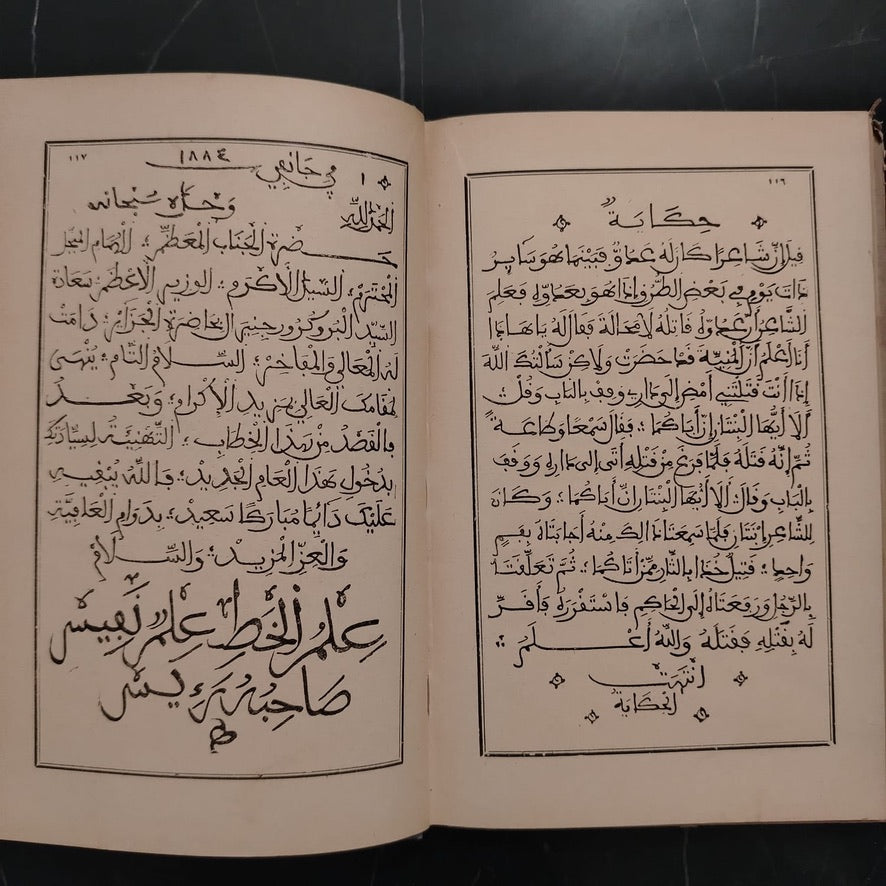 ١١٦
حِكَايَةٌ
قيل إنّ شاعرا كان له عدوّ فبينما هو ساير
ذات يوم في بعض الطرق وإذا هو بعدوّه فعلم
الشّاعر أن عدوّه قاتله لا محالة فقال له يا هاذا
أنا أعلم أن المنيّة قد حضرت ولاكن سألتك الله
إذا أنت قتلتني أمض إلى داري وقف بالباب وقل
ألا أيّها البنتان إن أباكما ؛ فقال سمعا وطاعة
ثم إنّه قتله فلمّا فرغ من قتله أتى إلى داره ووقف
بالباب وقال ألا أيّها البنتان إن أباكما ؛ وكان
للشّاعر ابنتان فلمّا سمعتا ذالك منه أجابتاه بفم
واحد ؛ قتيل خذا بالثّار ممّن أتاكما ؛ ثمّ تعلّقتا
بالرّجل ورفعتاه إلى الحاكم فاستقرره فأقرّ
له بقتله فقتله والله أعلم
انتهت
الحكاية
١١٧
١ في جانفي ١٨٨٤
الحمد لله وحده سبحانه
حضرة الجناب المعظّم ؛ الهمام المبجّل
المحترم ؛ السّيد الأكرم ؛ الوزير الأعظم ؛ سعادة
السّيّد البروكرور جنيرال بحاضرة الجزاير ؛ دامت
له المعالي والمفاخر ؛ السّلام التّام ؛ ينهى
لمقامك العالي بمزيد الإكرام ؛ وبعد
فالقصد من هذا الخطاب ؛ التّهنية لسيادتك
بدخول هذا العام الجديد ؛ فالله يبقيه
عليك دائما مباركا سعيد ؛ بدوام العافية
والعزّ المزيد ؛ والسّلام
علم الخط علم نفيس
صاحبه رءيس
ط